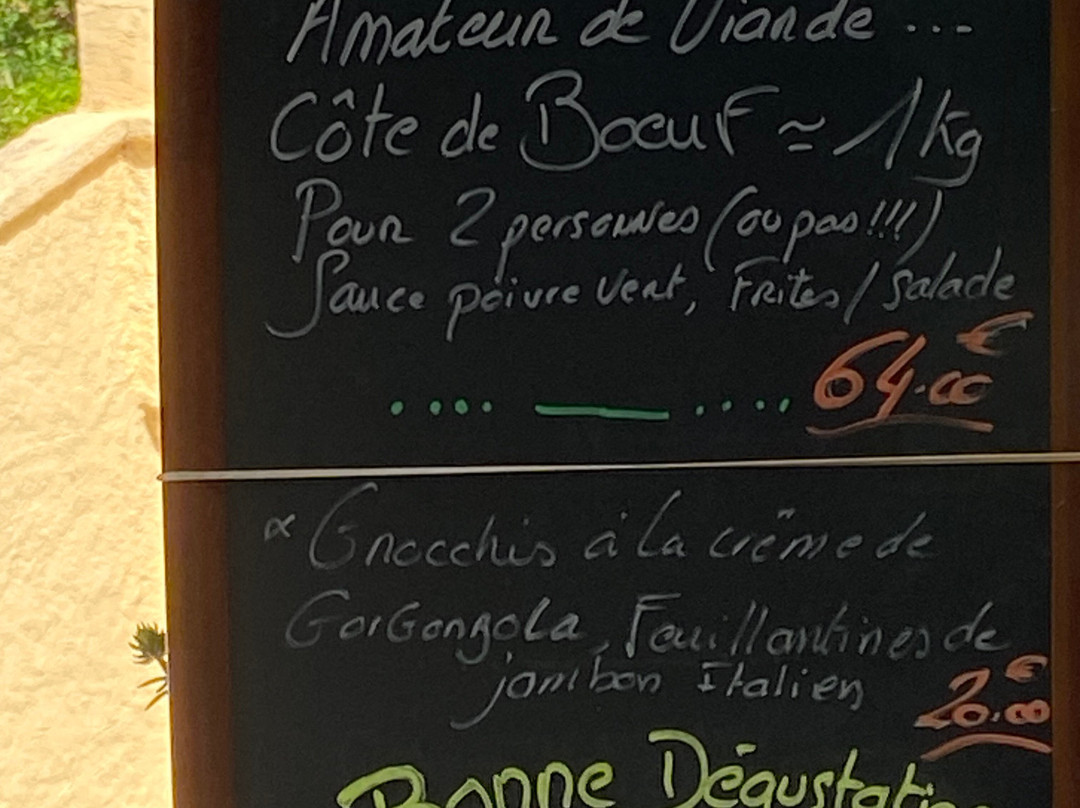 Amateur de Viande ...
Côte de Boeuf ≃ 1 kg
Pour 2 personnes (ou pas!!!)
Sauce poivre vert, Frites / Salade
64.00 €
Gnocchis à la crème de
GorGonzola, Feuillantines de
jambon Italien
20.00 €
Bonne Dégustatio